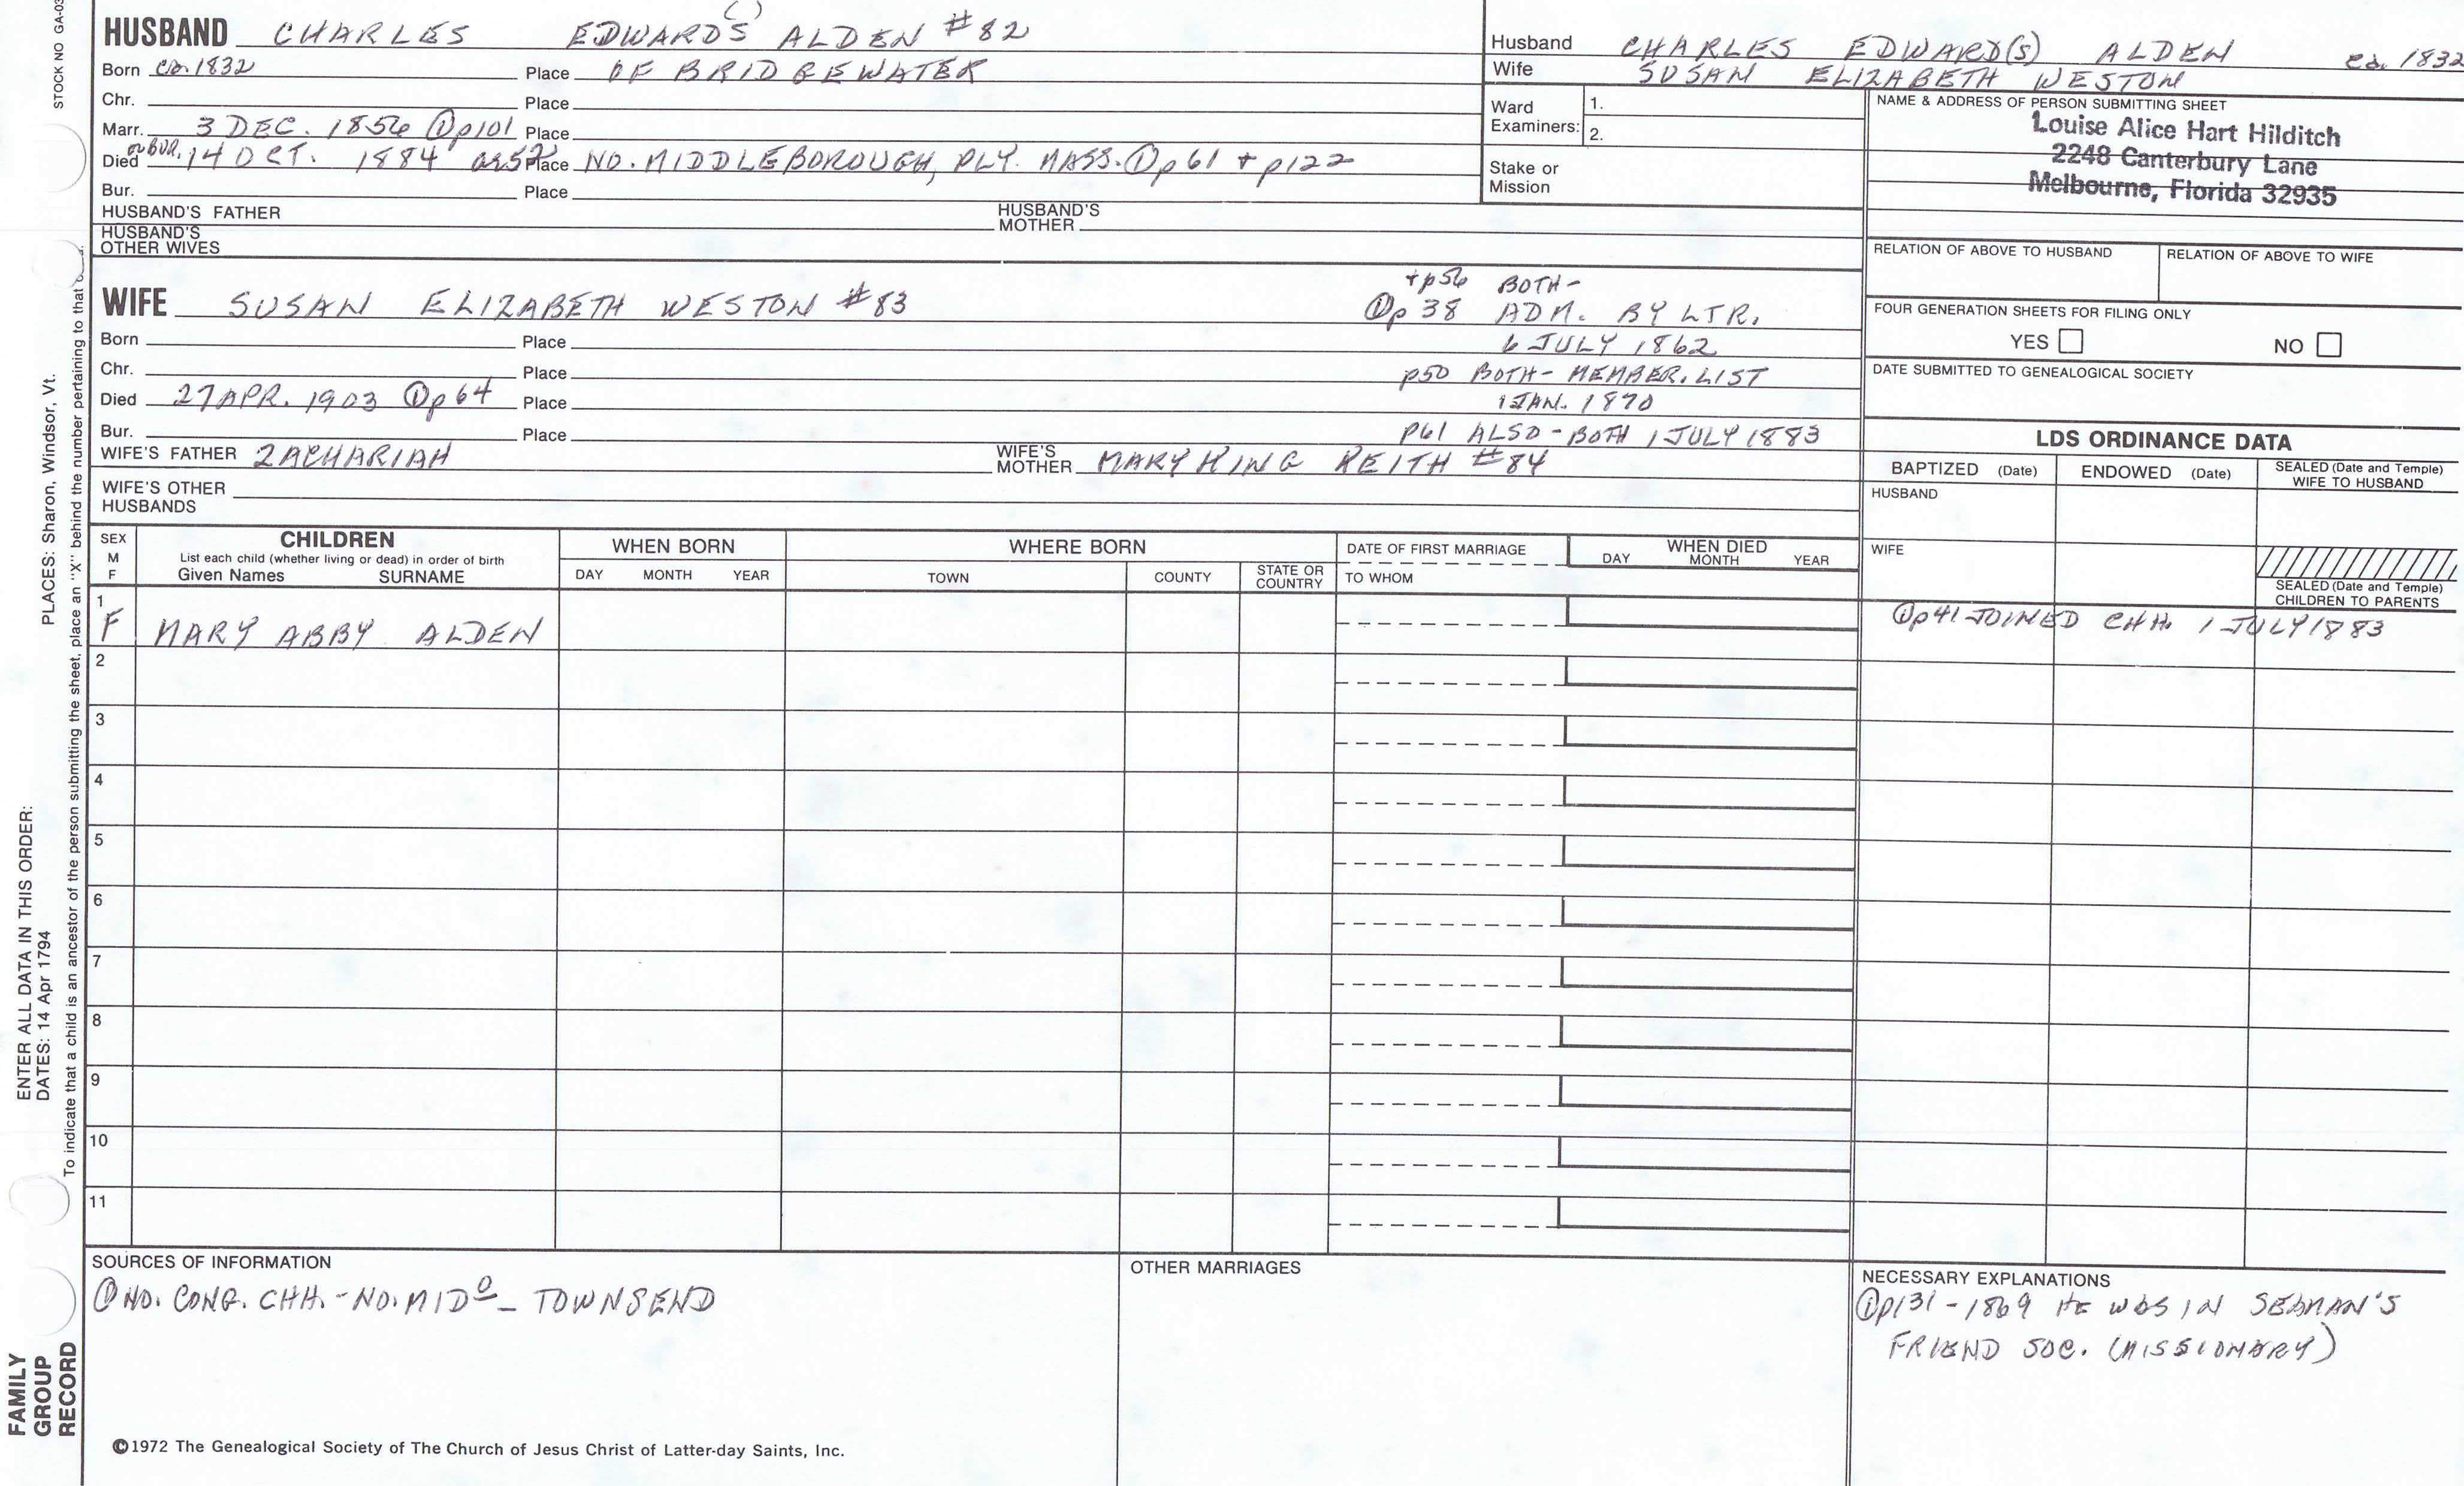 STOCK NO GA-03
HUSBAND CHARLES EDWARD(S) ALDEN #82
Born ca. 1832 Place OF BRIDGEWATER
Chr. Place
Marr. 3 DEC. 1856 ①p101 Place
Died or BUR. 14 OCT. 1884 ae 52 Place NO. MIDDLEBOROUGH, PLY. MASS. ①p61 + p122
Bur. Place
HUSBAND'S FATHER HUSBAND'S MOTHER
HUSBAND'S OTHER WIVES
Husband CHARLES EDWARD(S) ALDEN ca. 1832
Wife SUSAN ELIZABETH WESTON
Ward Examiners: 1.
2.
Stake or Mission
NAME & ADDRESS OF PERSON SUBMITTING SHEET
Louise Alice Hart Hilditch
2248 Canterbury Lane
Melbourne, Florida 32935
RELATION OF ABOVE TO HUSBAND RELATION OF ABOVE TO WIFE
FOUR GENERATION SHEETS FOR FILING ONLY
YES NO
DATE SUBMITTED TO GENEALOGICAL SOCIETY
WIFE SUSAN ELIZABETH WESTON #83
+p56 BOTH-
①p 38 ADM. BY LTR.
6 JULY 1862
p50 BOTH - MEMBER. LIST
1 JAN. 1870
p61 ALSO - BOTH 1 JULY 1883
Born Place
Chr. Place
Died 27 APR. 1903 ①p64 Place
Bur. Place
WIFE'S FATHER ZACHARIAH WIFE'S MOTHER MARY KING KEITH #84
WIFE'S OTHER HUSBANDS
LDS ORDINANCE DATA
BAPTIZED (Date) ENDOWED (Date) SEALED (Date and Temple) WIFE TO HUSBAND
HUSBAND
WIFE
SEALED (Date and Temple) CHILDREN TO PARENTS
SEX M F CHILDREN WHEN BORN WHERE BORN DATE OF FIRST MARRIAGE WHEN DIED
List each child (whether living or dead) in order of birth
Given Names SURNAME DAY MONTH YEAR TOWN COUNTY STATE OR COUNTRY TO WHOM DAY MONTH YEAR
1 F MARY ABBY ALDEN ①p41 JOINED CHH. 1 JULY 1883
2
3
4
5
6
7
8
9
10
11
SOURCES OF INFORMATION
① NO. CONG. CHH. - NO. MIDO - TOWNSEND
OTHER MARRIAGES
NECESSARY EXPLANATIONS
①p131 - 1869 HE WAS IN SEAMAN'S
FRIEND SOC. (MISSIONARY)
©1972 The Genealogical Society of The Church of Jesus Christ of Latter-day Saints, Inc.
FAMILY GROUP RECORD
ENTER ALL DATA IN THIS ORDER:
DATES: 14 Apr 1794 PLACES: Sharon, Windsor, Vt.
To indicate that a child is an ancestor of the person submitting the sheet, place an "X" behind the number pertaining to that